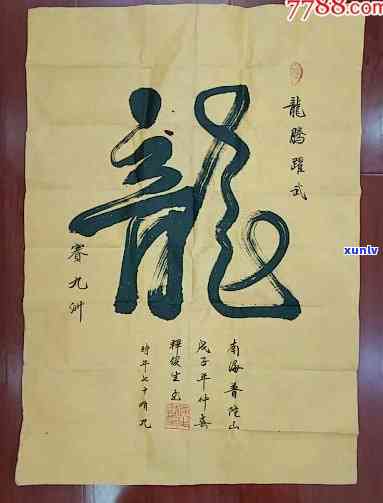 7788.com
龍騰躍武
龍
賽九洲
南海普陀山
戊子年仲春
釋俊生书
時年七十有九
xunlv